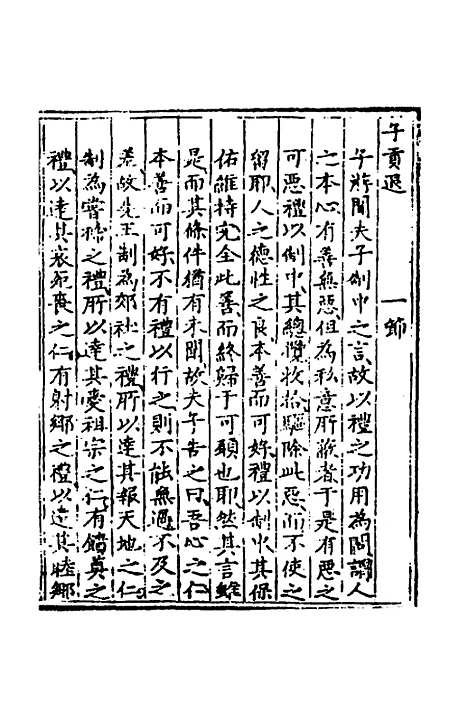 子貢退　　一節
子游聞夫子制中之言故以禮之功用為問謂人
之本心有善無惡但為私意所蔽者于是有惡之
可惡禮以制中其總攬收拾驅除此惡而不使之
留耶人之德性之良本善而可好禮以制中其保
佑維持完全此善而終歸于可願也耶然其言雖
是而其條件猶有未聞故夫子告之曰吾心之仁
本善而可好不有禮以行之則不能無過不及之
差故先王制為郊社之禮所以達其報天地之仁
制為嘗禘之禮所以達其愛祖宗之仁有饋奠之
禮以達其哀死喪之仁有射鄉之禮以達其睦鄉